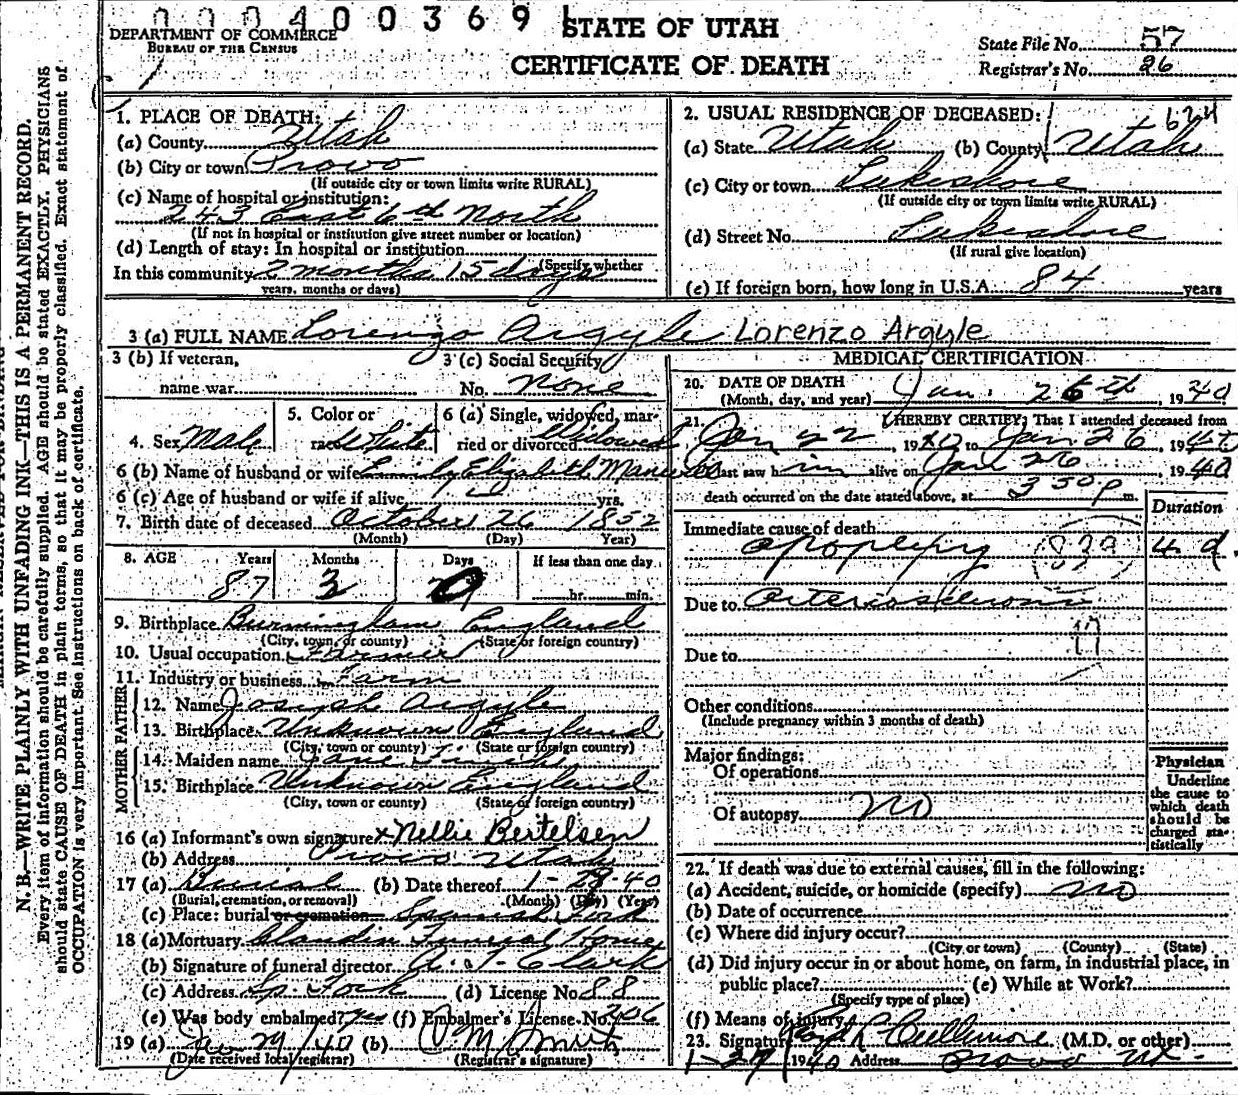 000400369
STATE OF UTAH
DEPARTMENT OF COMMERCE
BUREAU OF THE CENSUS
CERTIFICATE OF DEATH
State File No. 57
Registrar's No. 26
N. B.—WRITE PLAINLY WITH UNFADING INK—THIS IS A PERMANENT RECORD.
Every item of information should be carefully supplied. AGE should be stated EXACTLY. PHYSICIANS
should state CAUSE OF DEATH in plain terms, so that it may be properly classified. Exact statement of
OCCUPATION is very important. See instructions on back of certificate.
1. PLACE OF DEATH:
(a) County Utah
(b) City or town Provo
(If outside city or town limits write RURAL)
(c) Name of hospital or institution:
243 East 6th North
(If not in hospital or institution give street number or location)
(d) Length of stay: In hospital or institution
(Specify whether
In this community 2 months 15 days
years, months or days)
2. USUAL RESIDENCE OF DECEASED:
(a) State Utah (b) County Utah
(c) City or town Lakeshore
(If outside city or town limits write RURAL)
(d) Street No. Lakeshore
(If rural give location)
(e) If foreign born, how long in U.S.A. 84 years
3 (a) FULL NAME Lorenzo Argyle Lorenzo Argyle
3 (b) If veteran, 3 (c) Social Security
name war No. None
4. Sex Male 5. Color or race White 6 (a) Single, widowed, married or divorced Widowed
6 (b) Name of husband or wife Emily Elizabeth
6 (c) Age of husband or wife if alive yrs.
7. Birth date of deceased October 26 1852
(Month) (Day) Year)
8. AGE Years Months Days If less than one day
87 3 0 hr. min.
9. Birthplace Burmingham England
(City, town, or county) (State or foreign country)
10. Usual occupation Farmer
11. Industry or business Farm
FATHER
12. Name Joseph Argyle
13. Birthplace Unknown England
(City, town or county) (State or foreign country)
MOTHER
14. Maiden name Jane Smith
15. Birthplace Unknown England
(City, town or county) (State or foreign country)
16 (a) Informant's own signature x Nellie Bertelsen
(b) Address Provo Utah
17 (a) Burial (b) Date thereof 1-29-40
(Burial, cremation, or removal) (Month) (Day) (Year)
(c) Place: burial or cremation Spanish Fork
18 (a) Mortuary Claudin Funeral Home
(b) Signature of funeral director A. J. Clark
(c) Address Sp. Fork (d) License No. 88
(e) Was body embalmed? yes (f) Embalmer's License No. 206
19 (a) Jan 29/40 (b)
(Date received local registrar) (Registrar's signature)
MEDICAL CERTIFICATION
20. DATE OF DEATH Jan. 26th, 1940
(Month, day, and year)
21. I HEREBY CERTIFY, That I attended deceased from
Jan 22, 1940 to Jan 26, 1940
I last saw him alive on Jan 26, 1940
death occurred on the date stated above, at 3 50 P m.
Duration
Immediate cause of death
apoplexy 83a 4 d.
Due to Arteriosclerosis
Due to
Other conditions
(Include pregnancy within 3 months of death)
Major findings:
Of operations
Of autopsy no
Physician
Underline
the cause to
which death
should be
charged sta-
tistically
22. If death was due to external causes, fill in the following:
(a) Accident, suicide, or homicide (specify) no
(b) Date of occurrence
(c) Where did injury occur?
(City or town) (County) (State)
(d) Did injury occur in or about home, on farm, in industrial place, in
public place? (e) While at Work?
(Specify type of place)
(f) Means of injury
23. Signature Cullimore (M.D. or other)
1-27/1940 Address Provo Ut.